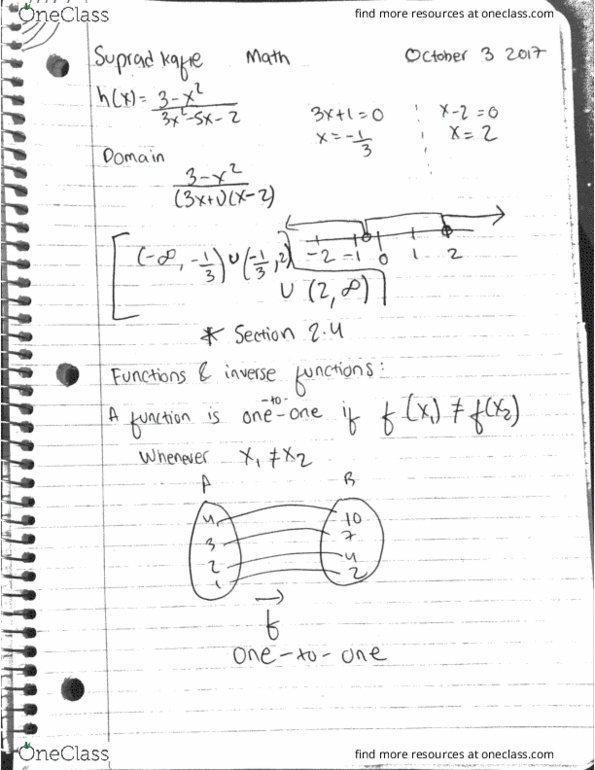 OneClass
find more resources at oneclass.com
Suprad Kafle Math October 3 2017
h(x) = 3-x²
3x²-5x-2
3x+1=0
x=-1/3
x-2=0
x=2
Domain
3-x²
(3x+1)(x-2)
-2 -1 0 1 2
(-∞, -1/3) ∪ (-1/3, 2)
∪ (2, ∞)
* Section 2.4
Functions & inverse functions:
A function is one-to-one if f(x₁) ≠ f(x₂)
Whenever x₁ ≠ x₂
A B
4 10
3 7
2 4
1 2
→
f
one-to-one
OneClass
find more resources at oneclass.com